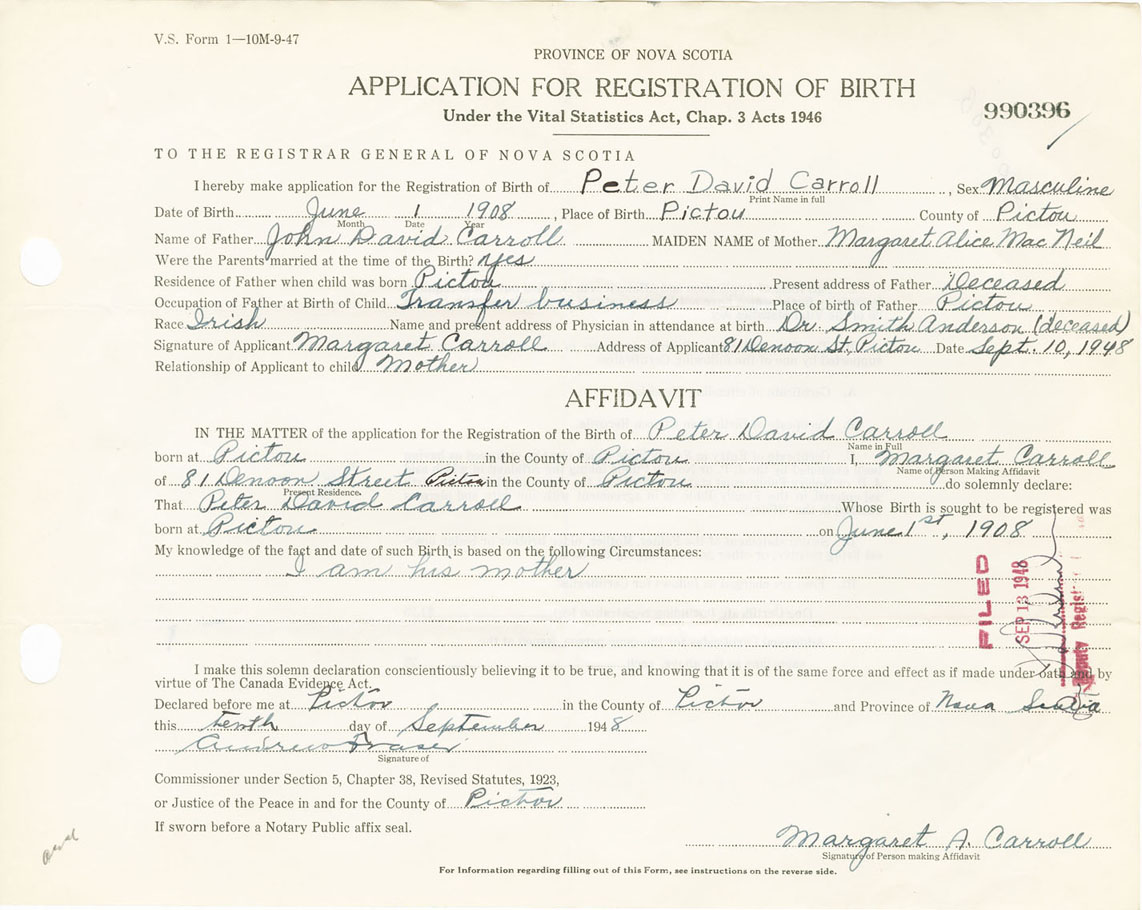 V.S. Form 1—10M-9-47
PROVINCE OF NOVA SCOTIA
APPLICATION FOR REGISTRATION OF BIRTH
Under the Vital Statistics Act, Chap. 3 Acts 1946
990396
TO THE REGISTRAR GENERAL OF NOVA SCOTIA
I hereby make application for the Registration of Birth of Peter David Carroll, Sex Masculine
Print Name in full
Date of Birth June 1 1908, Place of Birth Pictou County of Pictou
Month Date Year
Name of Father John David Carroll MAIDEN NAME of Mother Margaret Alice Mac Neil
Were the Parents married at the time of the Birth? Yes
Residence of Father when child was born Pictou Present address of Father Deceased
Occupation of Father at Birth of Child Transfer business Place of birth of Father Pictou
Race Irish Name and present address of Physician in attendance at birth Dr. Smith Anderson (deceased)
Signature of Applicant Margaret Carroll Address of Applicant 81 Denoon St., Pictou Date Sept. 10, 1948
Relationship of Applicant to child Mother
AFFIDAVIT
IN THE MATTER of the application for the Registration of the Birth of Peter David Carroll
Name in Full
born at Pictou in the County of Pictou I, Margaret Carroll
Name of Person Making Affidavit
of 81 Denoon Street Pictou in the County of Pictou do solemnly declare:
Present Residence
That Peter David Carroll Whose Birth is sought to be registered was
born at Pictou on June 1st, 1908
My knowledge of the fact and date of such Birth is based on the following Circumstances:
I am his mother
FILED
SEP 13 1948
Deputy Regist
I make this solemn declaration conscientiously believing it to be true, and knowing that it is of the same force and effect as if made under oath and by
virtue of The Canada Evidence Act.
Declared before me at Pictou in the County of Pictou and Province of Nova Scotia
this tenth day of September 1948
Andrew Fraser
Signature of
Commissioner under Section 5, Chapter 38, Revised Statutes, 1923,
or Justice of the Peace in and for the County of Pictou
If sworn before a Notary Public affix seal.
Margaret A. Carroll
Signature of Person making Affidavit
For Information regarding filling out of this Form, see instructions on the reverse side.